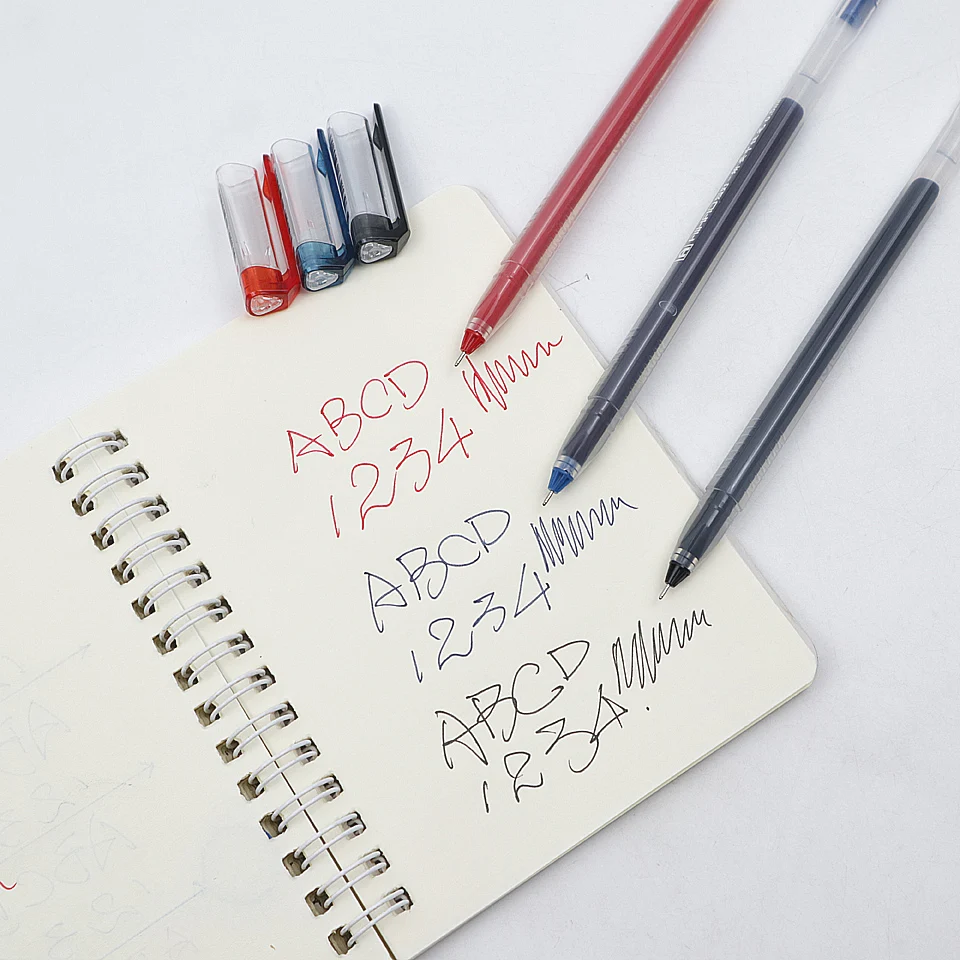 ABCD
1234
ABCD
1234
ABCD
1234